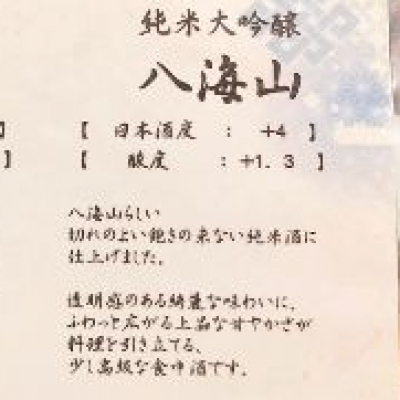 純米大吟醸
八海山
】 【 日本酒度 : +4 】
】 【 酸度 : +1.3 】
八海山らしい
切れのよい飽きの来ない純米酒に
仕上げました。
透明感のある綺麗な味わいに、
ふわっと広がる上品な甘やかさが
料理を引き立てる、
少し高級な食中酒です。